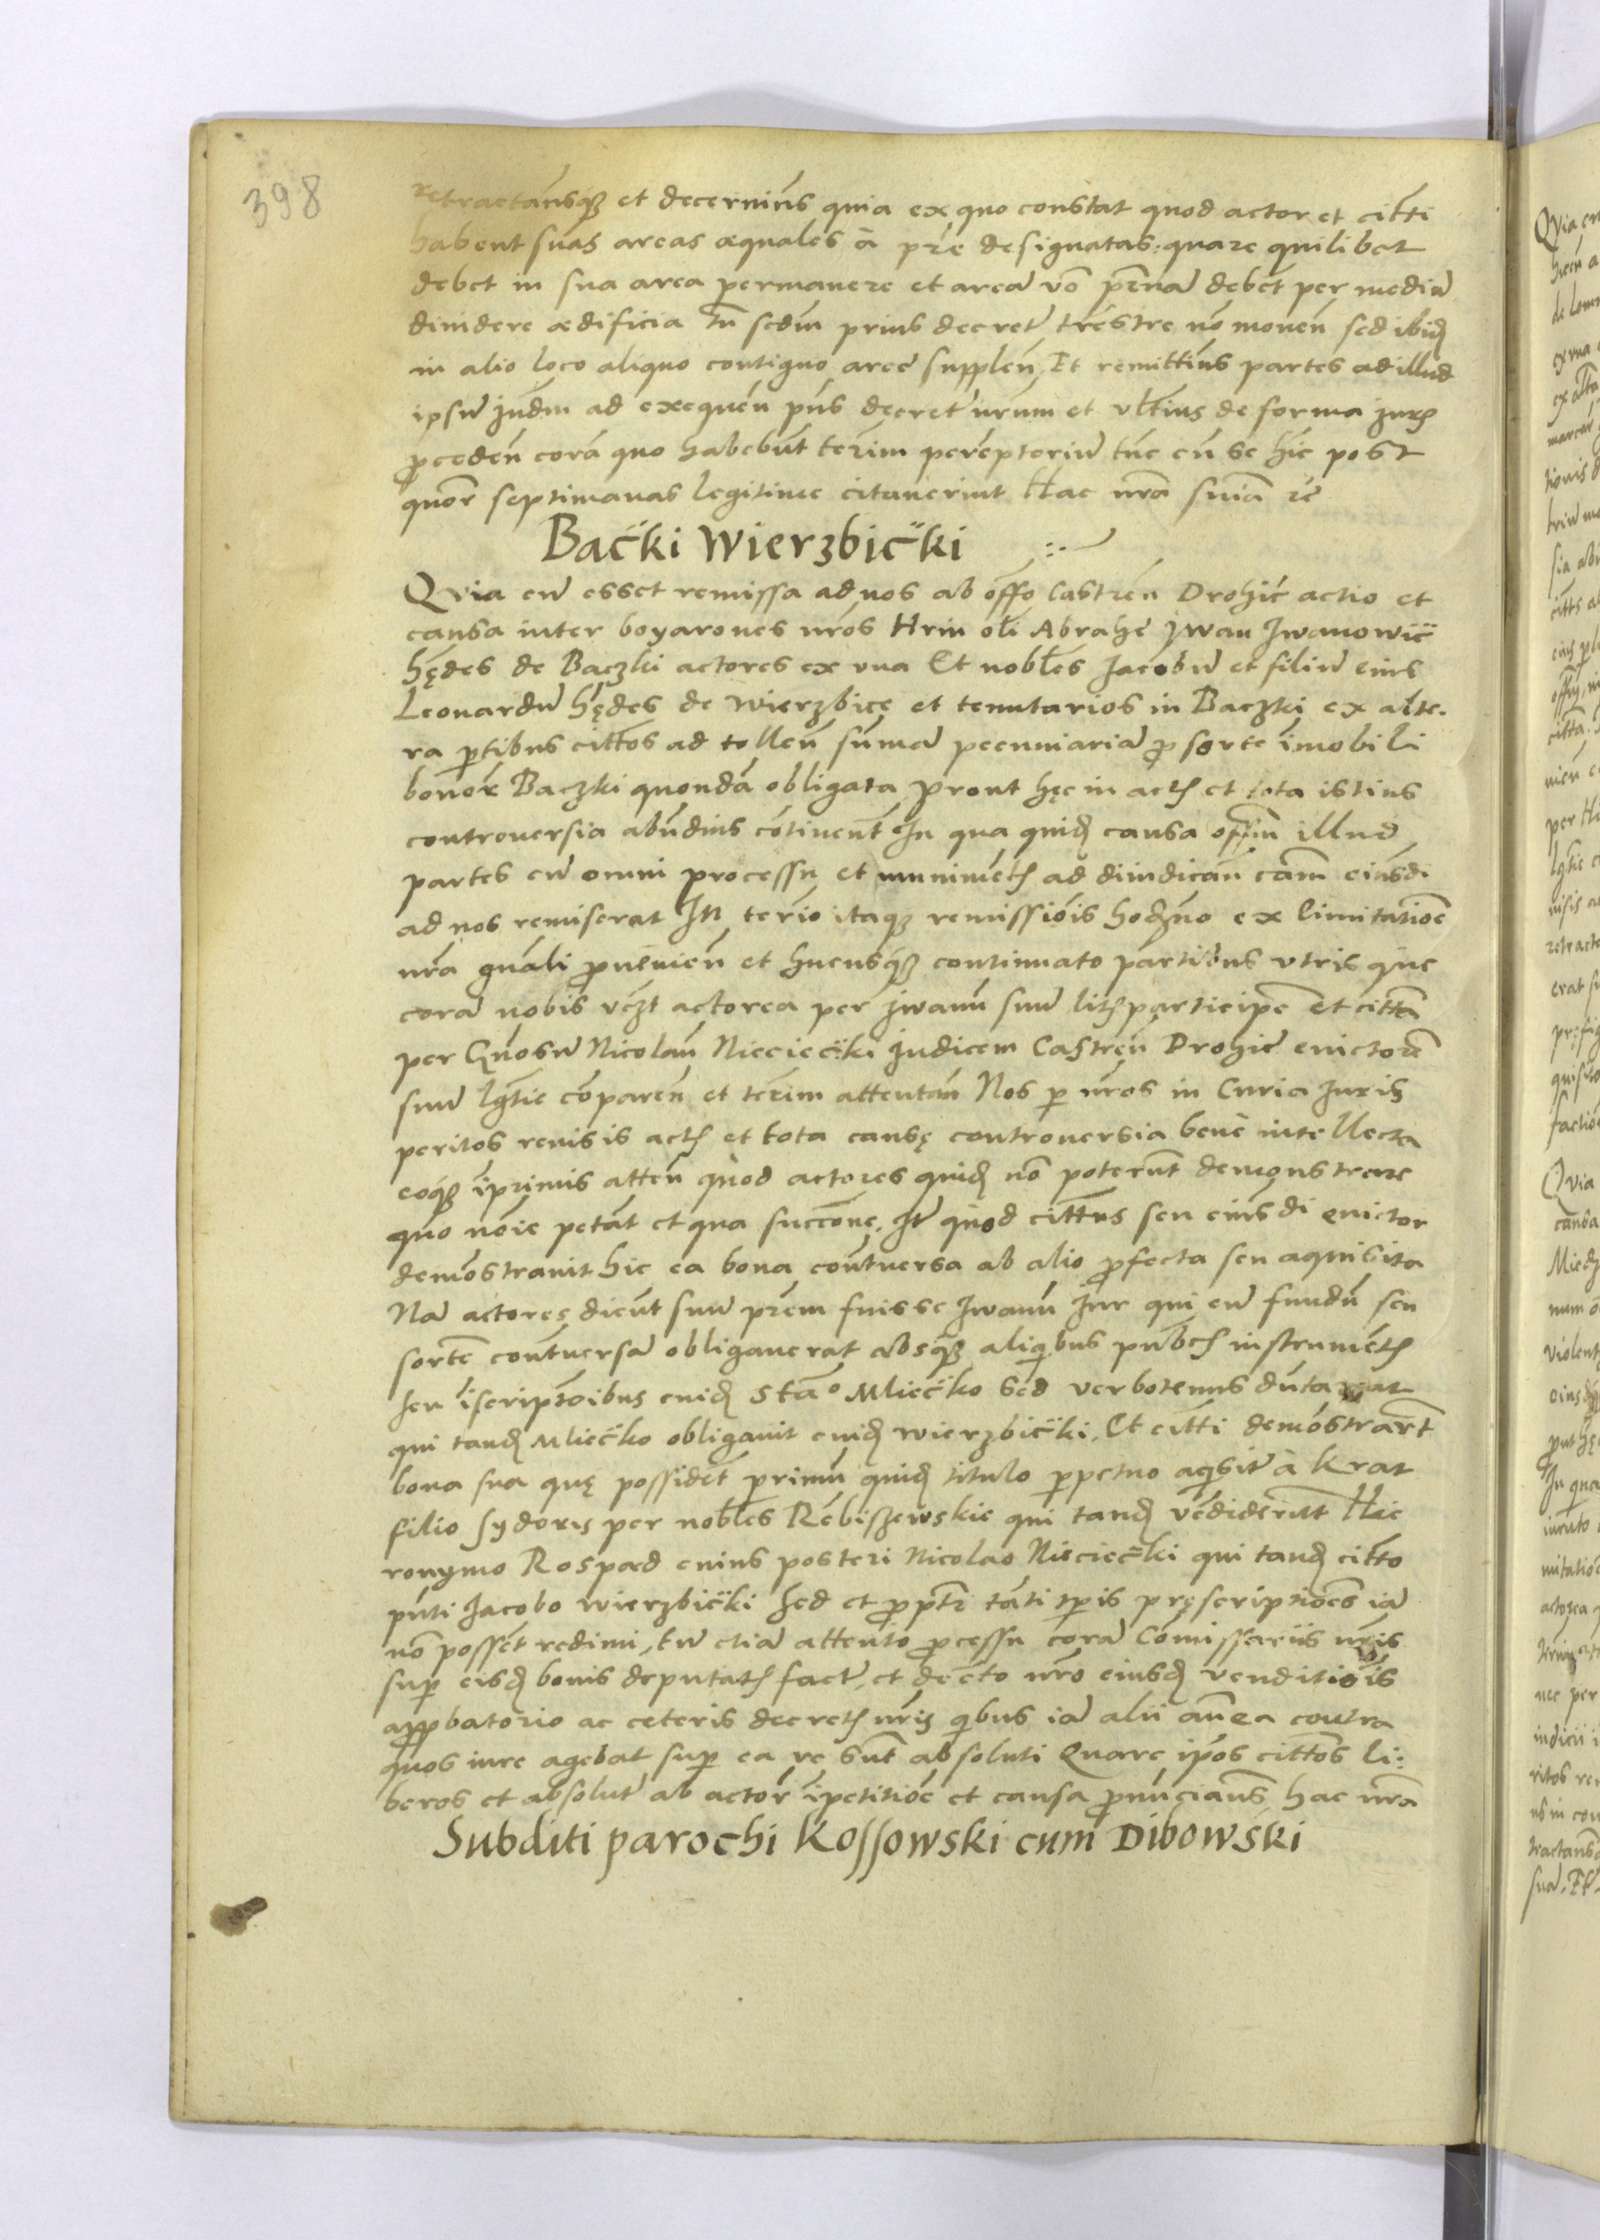 398
retractansq3 et decernims quia ex quo constat quod actor et citti
habent suas areas æquales à pre designatas: quare quilibet
debet in sua area permanere et area vo prna debet per mediu
dividere ædificia tn scdm prius decretu trestre no monen sed ibid
in alio loco aliquo contiguo aree supplen. Et remittims partes ad illud
ipsu judm ad exequen pns decretu nrum et vltius de forma juris
proceden cora quo habebunt termin peremptoriu tnc cu se hic post
quor septimanas legitime citaverint Hac nra snia re
Backi Wierzbicki
Qvia cu esset remissa ad nos ab offo Castren Drohic actio et
causa inter boyarones nros Hrin oli Abrahe Jwan Jwanowic
hędes de Baczki actores ex vna Et nobles Jacobu et filiu eius
Leonardu hędes de Wierzbicę et tenutarios in Baczki ex alte-
ra ptibus cittos ad tollen suma pecuniaria pro sorte imobili
bonor Baczki quonda obligata prout hęc in actis et tota istius
controversia abundius continent In qua quid causa offm illud
partes cu omni processu et munimetis ad diiudican cam eiusdi
ad nos remiserat In termio itaq3 remissiois hodierno ex limitatioe
nra gnali provenien et hucusq3 continuato partibus vtrisque
cora nobis vczt actorea per Jwanu suu litis participe Et citta
per Gnosu Nicolau Nieciecki Judicem Castren Drohic evictore
suu lgtie comparen et termin attentan Nos p nros in Curia Juris
peritos revisis actis et tota causę controversia bene intellecta
eoq3 iprimis atten quod actores quid no poterunt demonstrare
quo noie petat et qua succone. It quod cittus seu eiusdi evictor
demostravit hic ea bona contversa ab alio profecta seu aquisita
Na actores dicunt suu prem fuisse Jwanu Jnr qui cu fundu seu
sorte contversa obligaverat absq3 aliqibus pubcis instrumetis
seu iscriptoibus cuid Stao Mliecko sed verbotenus duntaxat
qui tand Mliecko obligavit cuid Wierzbicki. Et citti demostrarut
bona sua quę possidet primu quid titulo ppetuo aqisit à Krat
filio Sydoris per nobles Rebiszewskie qui tand vediderut Hie
ronymo Rospæd cuius posteri Nicolao Nieciecki qui tand citto
pnti Jacobo Wierzbicki Sed et proptr tati tpis pręscriptioes ia
no posset redimi, tu etia attento processu cora Comissariis nris
sup eisd bonis deputatis factu et decto nro eiusd venditiois
approbatorio ac ceteris decretis nris qibus ia alii antea contra
quos iure agebat sup ea re sunt absoluti Quare ipos cittos li:
beros et absolut ab actor ipetitioe et causa pronuncians hac nra
Subditi parochi Kossowski cum Dibowski